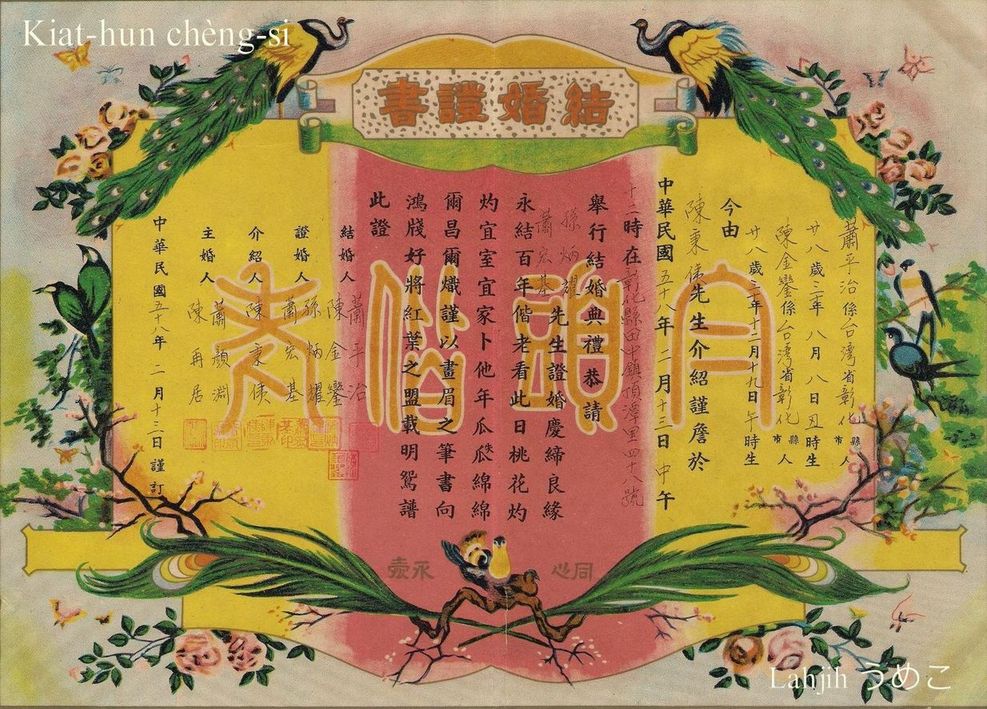 Kiat-hun chèng-si
結婚證書
蕭平治係台灣省彰化縣市人
廿八歲三年八月八日丑時生
陳金鑾係台湾省彰化縣市人
廿八歲三年十二月十九日午時生
今由
陳秉候先生介紹謹詹於
中華民國五十八年二月十三日中午
十二時在彰化縣田中鎮頂潭里四十八號
舉行結婚典禮恭請
孫炳耀
蕭宏基先生證婚慶締良緣
永結百年偕老看此日桃花灼
灼宜室宜家卜他年瓜瓞綿綿
爾昌爾熾謹以畫眉之筆書向
鴻牋好將紅葉之盟載明鴛譜
此證
結婚人 蕭平治
陳金鑾
證婚人 孫炳耀
蕭宏基
介紹人 陳秉候
主婚人 蕭顏淵
陳再居
中華民國五十八年二月十三日謹訂
白頭偕老
同心
永壺
Lahjih うめこ